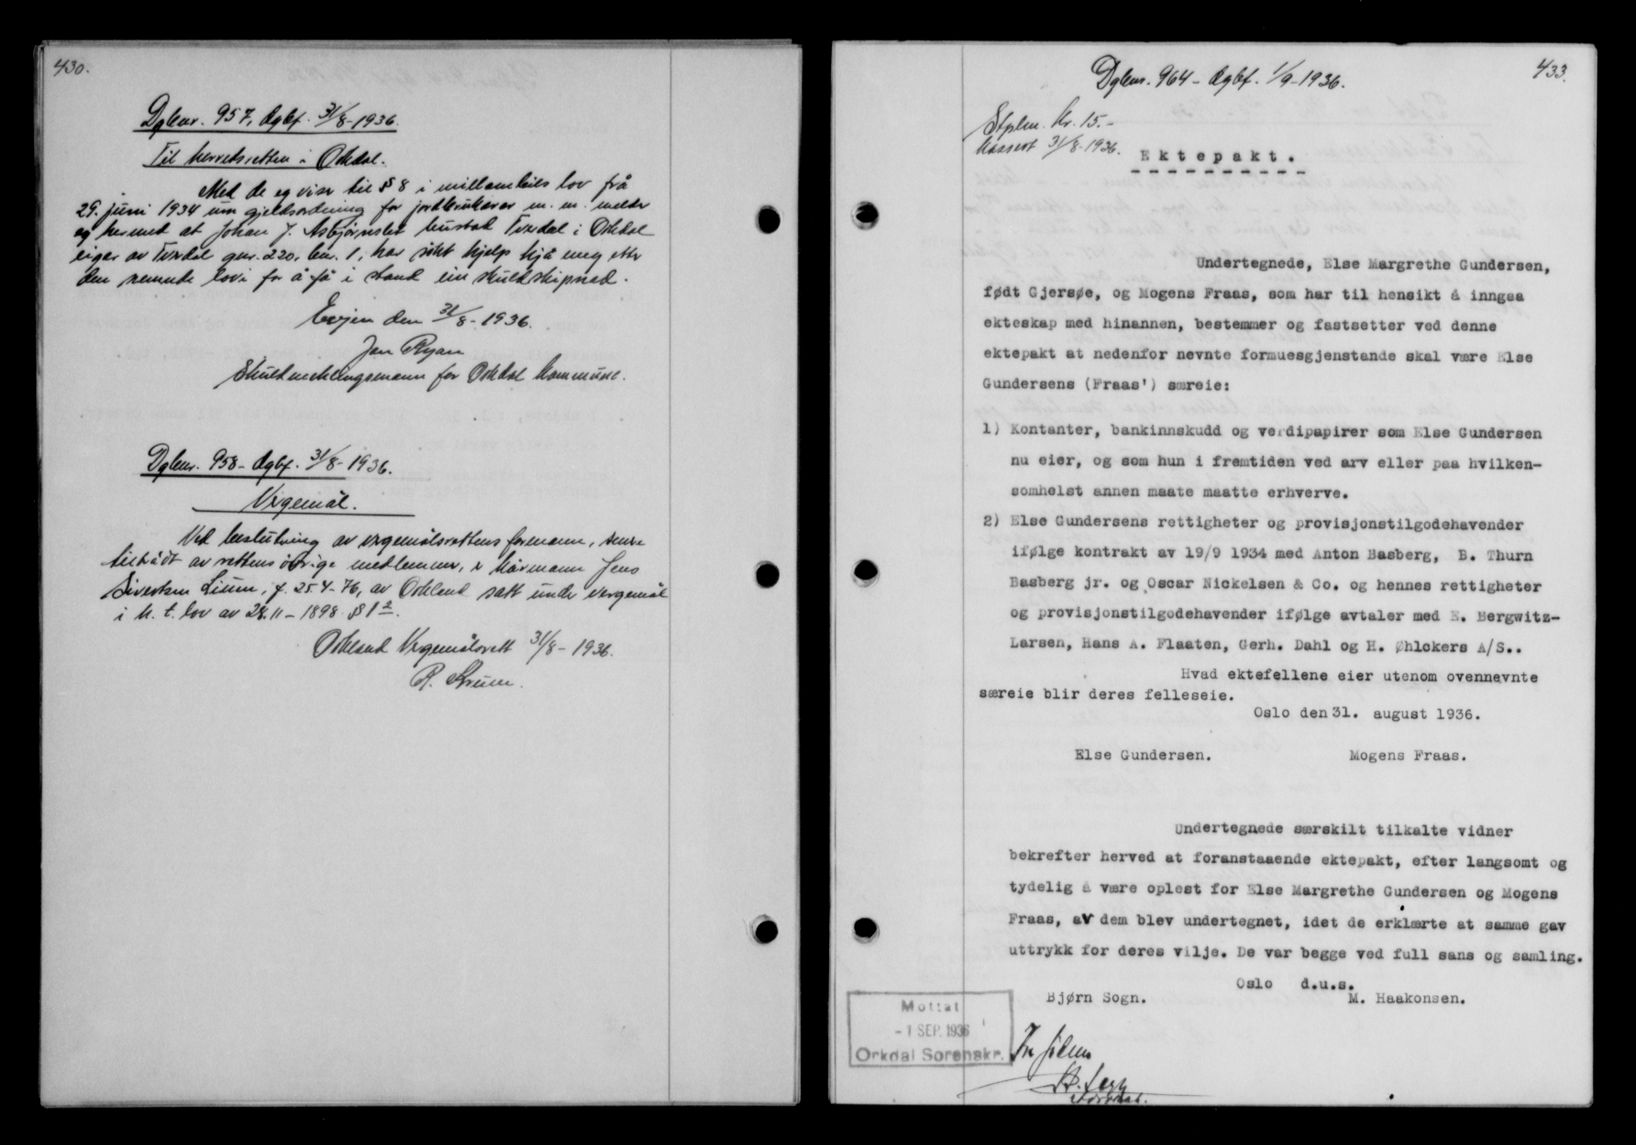 430.
Dgbnr. 957, dgbf. 31/8-1936.
Til herredsretten i Orkdal.
Med de eg viser til § 8 i millombils lov frå
29. juni 1934 um gjeldsordning for jordbrukarar m. m. melder
eg hermed at Johan J. Asbjørnslet bustad Evjdal i Orkdal
eigar av gnr. 220, bnr. 1, har søkt hjelp hjå meg etter
den nemnde lovi for å få i stand ein skuldskipnad.
Evjen den 31/8-1936.
Jon Ryan
Skuldmeklingsmann for Orkdal kommune.
Dgbnr. 958 - dgbf. 31/8-1936.
Vergemål.
Ved beslutning av vergemålsrettens formann, senere
tiltrådt av rettens øvrige medlemmer, er kårmann Jens
Sivertsen Lium, f. 25.4-76, av Orkland satt under vergemål
i h. t. lov av 28.11-1898 § 1 2.
Orkland Vergemålsrett 31/8-1936.
433.
Dgbnr. 964 - dgbf. 1/9-1936.
Stplm. kr. 15.-
kassert 31/8-1936.
Ektepakt.
Undertegnede, Else Margrethe Gundersen,
født Gjersøe, og Mogens Fraas, som har til hensikt å inngaa
ekteskap med hinannen, bestemmer og fastsetter ved denne
ektepakt at nedenfor nevnte formuesgjenstande skal være Else
Gundersens (Fraas') særeie:
1) Kontanter, bankinnskudd og verdipapirer som Else Gundersen
nu eier, og som hun i fremtiden ved arv eller paa hvilken-
somhelst annen maate maatte erhverve.
2) Else Gundersens rettigheter og provisjonstilgodehavender
ifølge kontrakt av 19/9 1934 med Anton Basberg, B. Thurn
Basberg jr. og Oscar Nickelsen & Co. og hennes rettigheter
og provisjonstilgodehavender ifølge avtaler med E. Bergwitz-
Larsen, Hans A. Flaaten, Gerh. Dahl og H. Øhlckers A/S..
Hvad ektefellene eier utenom ovennevnte
særeie blir deres felleseie.
Oslo den 31. august 1936.
Else Gundersen. Mogens Fraas.
Undertegnede særskilt tilkalte vidner
bekrefter herved at foranstaaende ektepakt, efter langsomt og
tydelig å være oplest for Else Margrethe Gundersen og Mogens
Fraas, av dem blev undertegnet, idet de erklærte at samme gav
uttrykk for deres vilje. De var begge ved full sans og samling.
Oslo d.u.s.
Bjørn Sogn. M. Haakonsen.
Mottat
- 1 SEP. 1936
Orkdal Sorenskr.